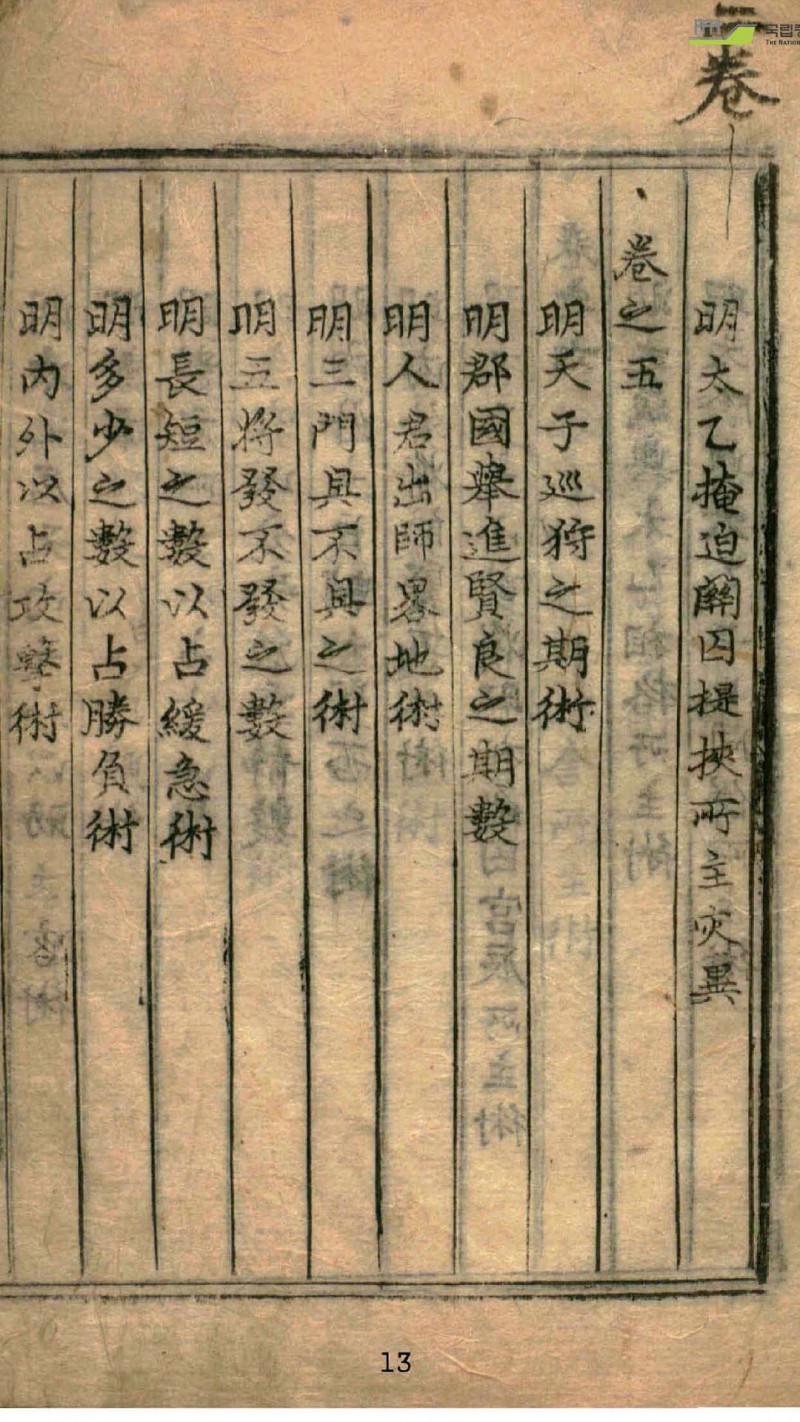 二卷
明太乙掩迫關囚提挾所主灾異
卷之五
明天子巡狩之期術
明郡國舉進賢良之期數
明人君出師畧地術
明三門具不具之術
明五將發不發之數
明長短之數以占緩急術
明多少之數以占勝負術
明內外以占攻擊術
국립중
THE NATION
13